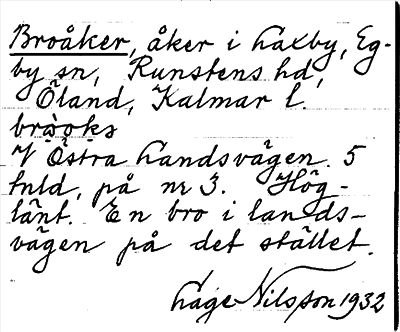 Broåker, åker i Laxby, Eg-
by sn, Runstens hd,
Öland, Kalmar l.
V Östra Landsvägen. 5
tnld, på nr 3. Hög-
länt. En bro i lands-
vägen på det stället.
Låge Nilsson 1932